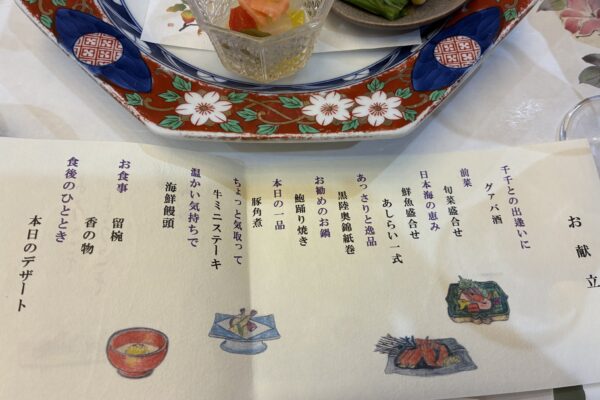 お献立
千千との出逢いに
グァバ酒
前菜
旬菜盛合せ
日本海の恵み
鮮魚盛合せ
あしらい一式
あっさりと逸品
黒陸奥錦紙巻
お勧めのお鍋
鮑踊り焼き
本日の一品
豚角煮
ちょっと気取って
牛ミニステーキ
温かい気持ちで
海鮮饅頭
お食事
留椀
香の物
食後のひととき
本日のデザート